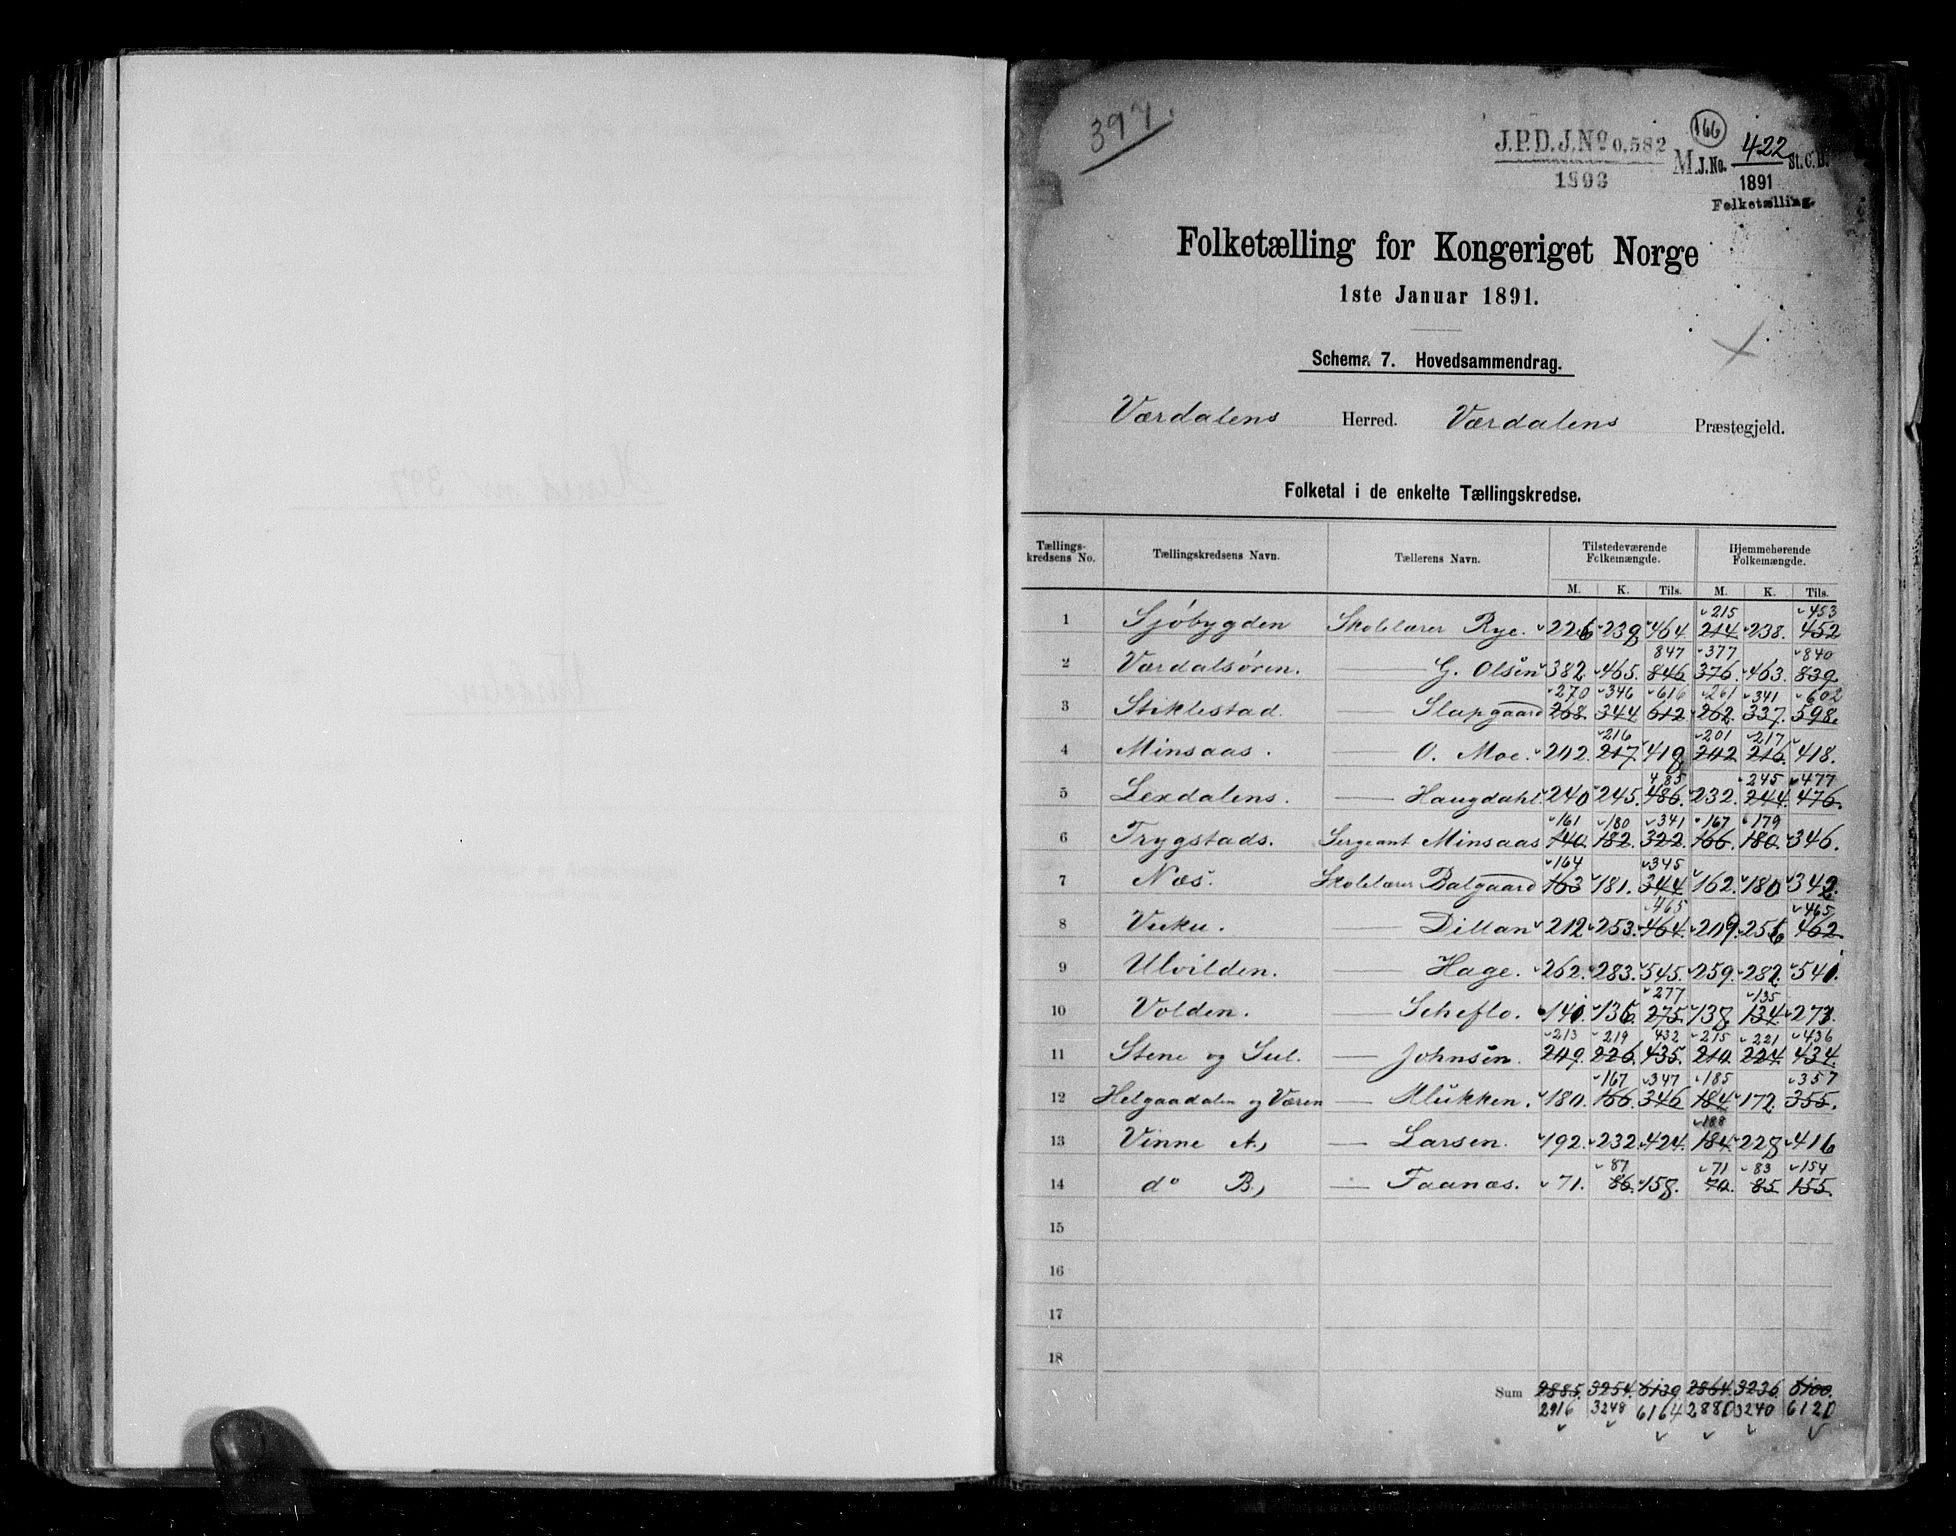 397.
J.P.D.J.No 0,582
1893
166
M.J.No. 422 St.C.B.
1891
Folketælling.
Folketælling for Kongeriget Norge
1ste Januar 1891.
Schema 7. Hovedsammendrag.
Værdalens Herred. Værdalens Præstegjeld.
Folketal i de enkelte Tællingskredse.
Tællingskredsens No. Tællingskredsens Navn. Tællerens Navn. Tilstedeværende Folkemængde. Hjemmehørende Folkemængde.
M. K. Tils. M. K. Tils.
215 453
1 Sjöbygden Skolelærer Rye. 226 238 464 214 238. 452
847 377 840
2 Værdalsören. — G. Olsen 382 465. 846 376. 463. 839
270 346 616 261 341 602
3 Stiklestad. — Slapgaard 268. 344 612 262. 337. 598.
216 201 217
4 Minsaas. — O. Moe. 202. 217. 418 202 216. 418.
485 245 477
5 Lexdalens. — Haugdahl 240 245. 486. 232. 244. 476.
161 180 341 167 179
6 Trygstads. Sergeant Minsaas 140. 182. 322. 166. 180. 346.
164 345
7 Næs. Skolelærer Balgaard 163 181. 344 162. 180 342.
465 465
8 Vuku. — Dillan 212 253. 464. 209. 256 462.
9 Ulvilden. — Hage. 262. 283. 545. 259. 282. 541.
277 135
10 Volden. — Scheflo. 141. 136. 275. 138 134. 273.
213 219 432 215 221 436
11 Stene og Sul. — Johnsen. 209. 226. 435. 210. 224. 434.
167 347 185 357
12 Helgaadalen og Væren — Klukken. 180. 166. 346 184 172. 355.
188
13 Vinne A) — Larsen. 192. 232. 424. 184. 228 416
87 71 83 154
14 do B) — Faanæs. 71. 86. 158. 70. 85 155.
15
16
17
18
Sum 2885. 3254. 6139 2864. 3236. 6100.
2916 3248 6164 2880 3240 6120